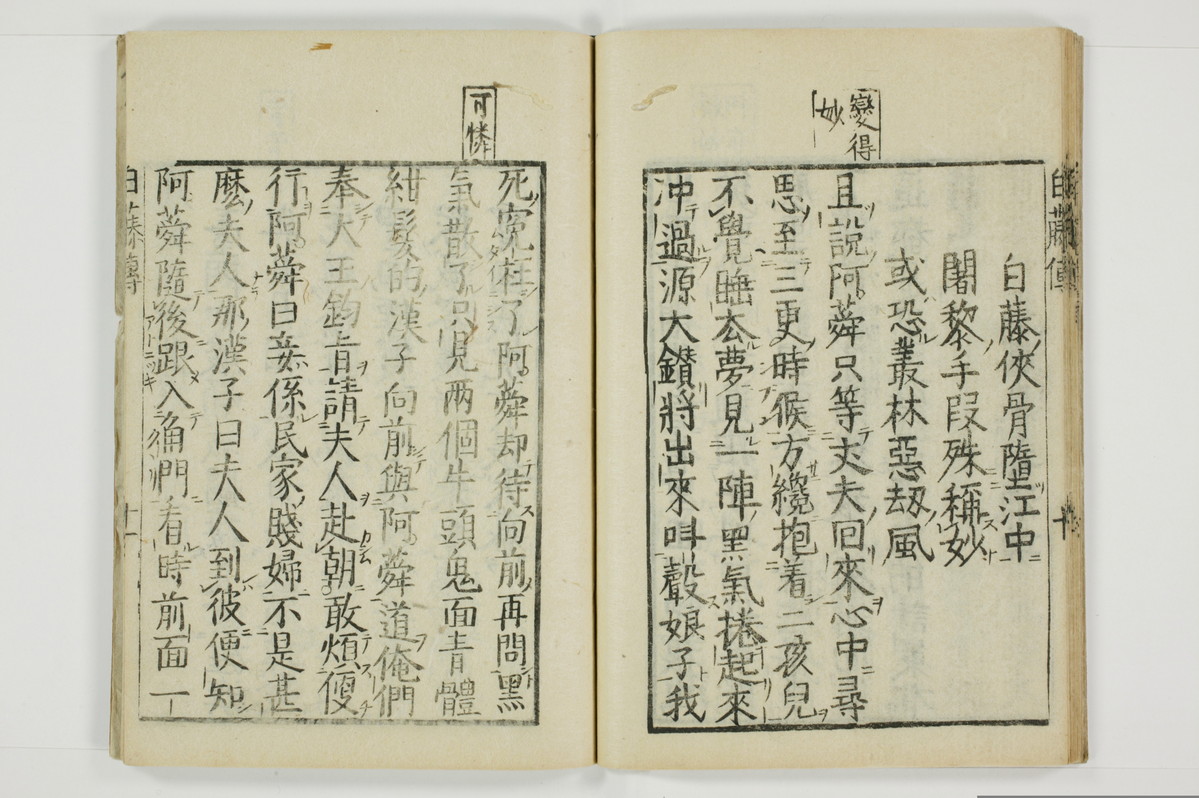 變得
妙
白藤傳
白藤俠骨墮江中
闍黎手段殊稱妙
或恐叢林惡劫風
且說阿蕣只等丈夫回來心中尋
思至三更時候方纔抱着二孩兒
不覺睡去夢見一陣黑氣捲起來
冲過源大鑚將出來呌聲娘子我
可憐
死寃在了阿蕣却待向前再問黑
氣散了只見兩個牛頭鬼面青體
紺髮的漢子向前與阿蕣道俺們
奉大王鈞旨請夫人赴朝敢煩便
行阿蕣曰妾係民家賤婦不是甚
麽夫人那漢子曰夫人到彼便知
阿蕣隨後跟入角門看時前面一
白藤傳
十一